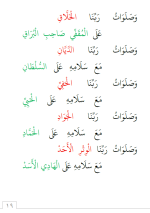 وَصَلَوَاتُ رَبِّنَا الْخَلَّاقِ
عَلَى الْمُقَفِّي صَاحِبِ الْبُرَاقِ
وَصَلَوَاتُ رَبِّنَا الدَّيَّانِ
مَعَ سَلَامِهِ عَلَى السُّلْطَانِ
وَصَلَوَاتُ رَبِّنَا الْحَفِيِّ
مَعَ سَلَامِهِ عَلَى
وَصَلَوَاتُ رَبِّنَا الْجَوَادِ
مَعَ سَلَامِهِ عَلَى
وَصَلَوَاتُ رَبِّنَا الْوِتْرِ الْأَحَدْ
مَعَ سَلَامِهِ عَلَى الْهَادِي الْأَسَدْ
١٦